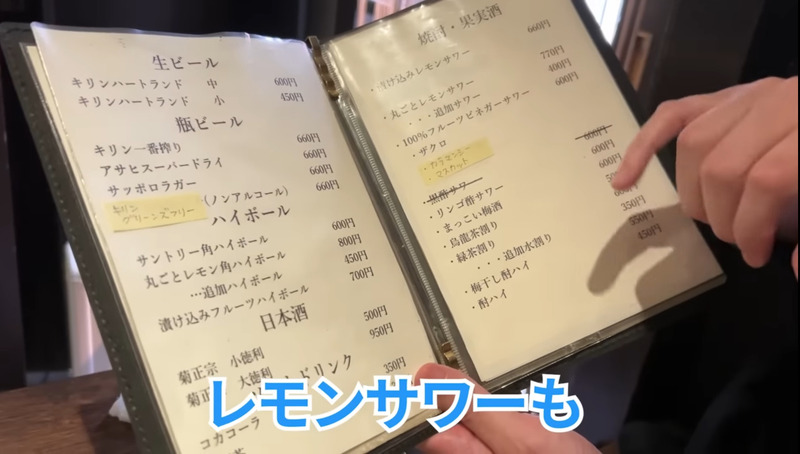 生ビール
キリンハートランド 中 600円
キリンハートランド 小 450円
瓶ビール
キリン一番搾り 660円
アサヒスーパードライ 660円
サッポロラガー 660円
キリン グリーンズフリー (ノンアルコール) 660円
ハイボール
サントリー角ハイボール 600円
丸ごとレモン角ハイボール 800円
…追加ハイボール 450円
漬け込みフルーツハイボール 700円
日本酒
菊正宗 小徳利 500円
菊正 大徳利 950円
ドリンク
コカコーラ 350円
焼酎・果実酒
・漬け込みレモンサワー 660円
・丸ごとレモンサワー 770円
・・・追加サワー 400円
・100%フルーツビネガーサワー 600円
・ザクロ
・カラマンシー
・マスカット
黒酢サワー 600円
・リンゴ酢サワー 600円
・まっこい梅酒 600円
・烏龍茶割り
・緑茶割り
・・・追加水割り 350円
・梅干し酎ハイ 550円
・酎ハイ 450円
レモンサワーも